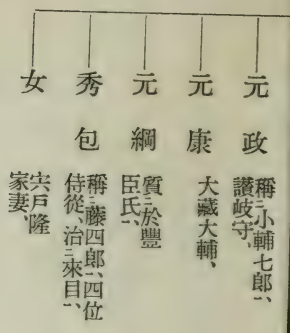 元政
稱㆓小輔七郎㆒、
讃岐守、
元康
大藏大輔、
元綱
質㆓於豐
臣氏㆒、
秀包
稱㆓藤四郎㆒、四位
侍從、治㆓來目㆒、
女
宍戸隆
家妻、